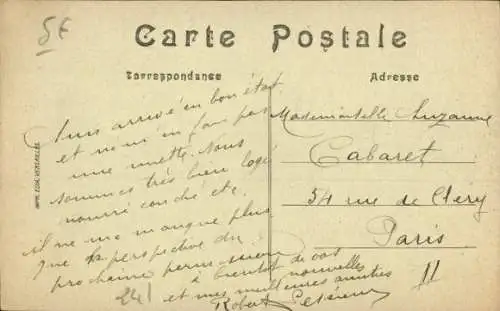 5 €
Carte Postale
Correspondance
Adresse
Suis arrivé en bon état
et nous en fais pas
une miette. Nous
sommes très bien logé
nourri couché etc.
il ne me manque plus
que perspective du
prochaine permission
à bientôt de vos
nouvelles
et mes meilleures amitiés
Robert
241
Mademoiselle Suzanne
Cabaret
54 rue de Cléry
Paris
II
IMP. EDIA VERSAILLES